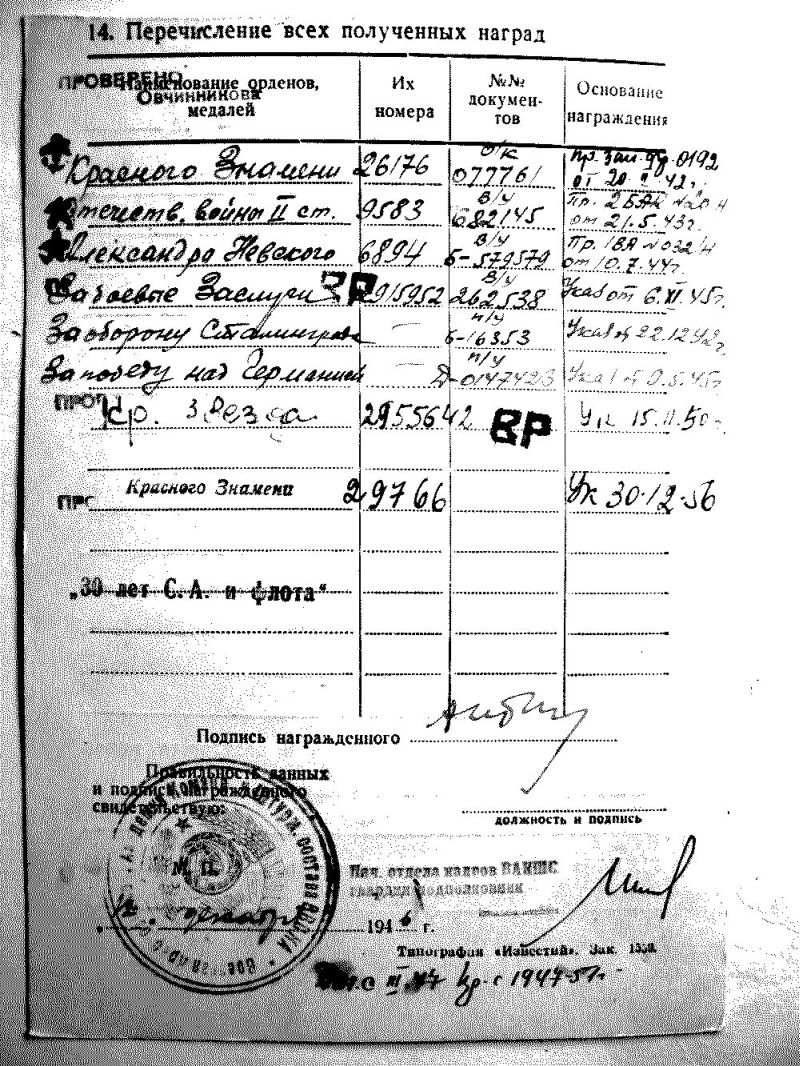 14. Перечисление всех полученных наград
ПРОВЕРЕНО
Наименование орденов,
Овчинникова
медалей
Их
номера
№№
докумен-
тов
Основание
награждения
Красного Знамени 26176 о/к 077761 Пр. 0192
от 20. 42г.
Отечеств. войны II ст. 9583 в/у 682145 Пр. 2 БАК №20 н
от 21.5.43г.
Александра Невского 6894 в/у Б-579579 Пр. 1ВА №032/н
от 10.7.44г.
За боевые Заслуги ВР 2915952 в/у 262538 Указ от 6.XI.45г.
За оборону Сталинграда — п/у Б-16353 Указ от 22.12.42г.
За победу над Германией — п/у Д-0147423 Указ от 9.5.45г.
Кр. Звезда 2955642 ВР Ук 15.11.50
ПРО
Красного Знамени 29766 Ук 30.12.56
„30 лет С.А. и флота“
Подпись награжденного
Правильность данных
и подписи награжденного
свидетельствую:
должность и подпись
М. П.
Нач. отдела кадров
гвардии подполковник
12 декабря 1946 г.
Типография «Известий». Зак.
с 1947-57г.